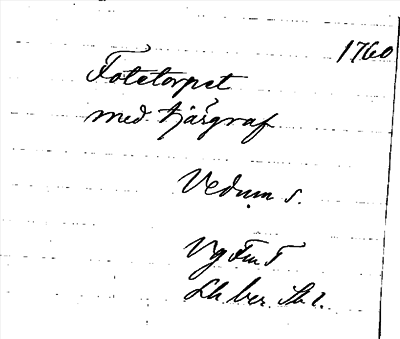 1760
Fotetorpet
med tjärgraf
Vedum s.
Vg Fm T
Lh ber. Sk 1.